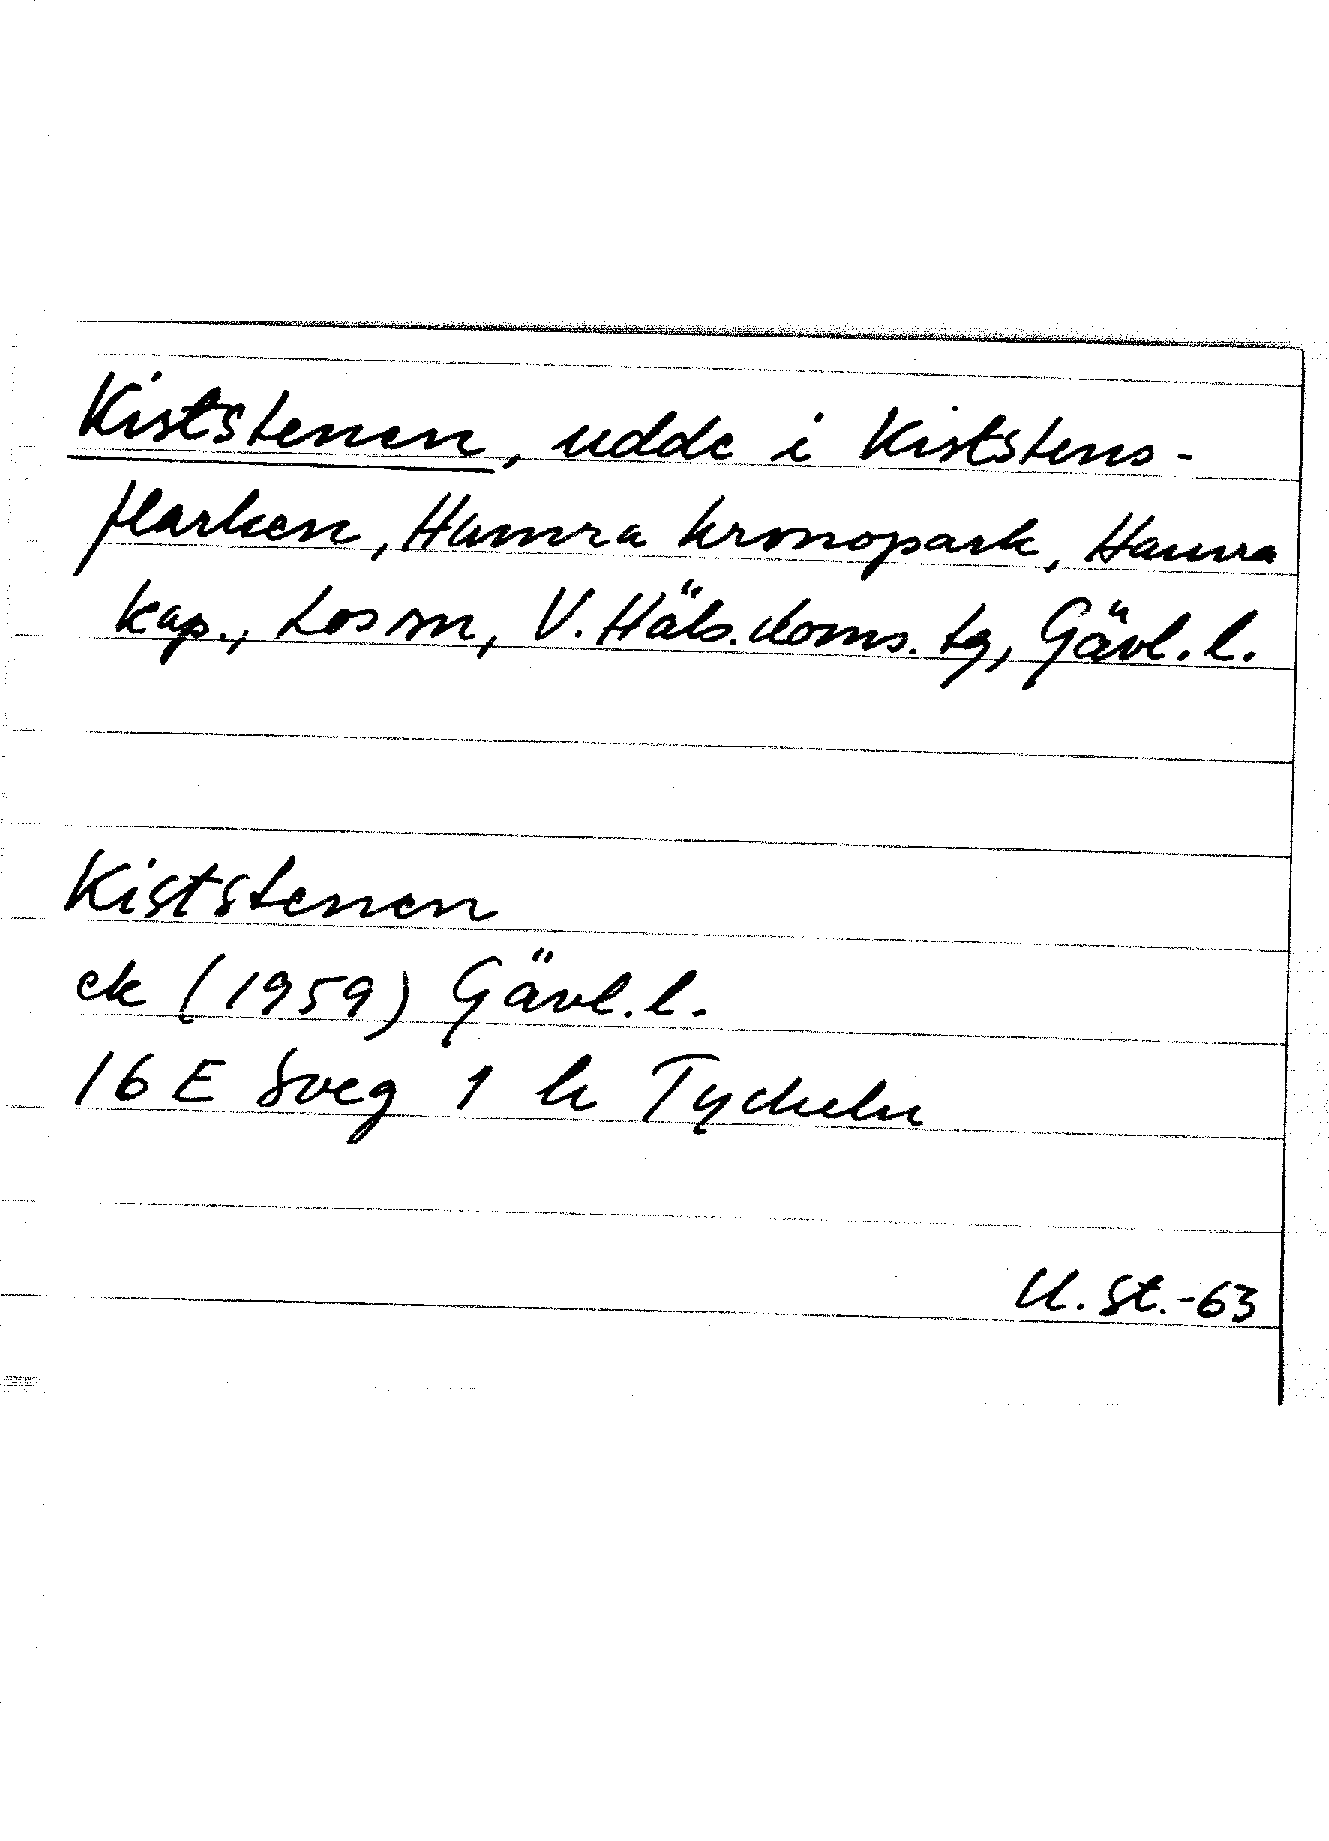 Kiststenen, udde i Kiststens-
flarken, Hamra kronopark, Hamra
kap., Los sn, V. Häls. doms. tg, Gävl. l.
Kiststenen
ek (1959) Gävl. l.
16 E Sveg 1 h Tyckeln
U. St. -63